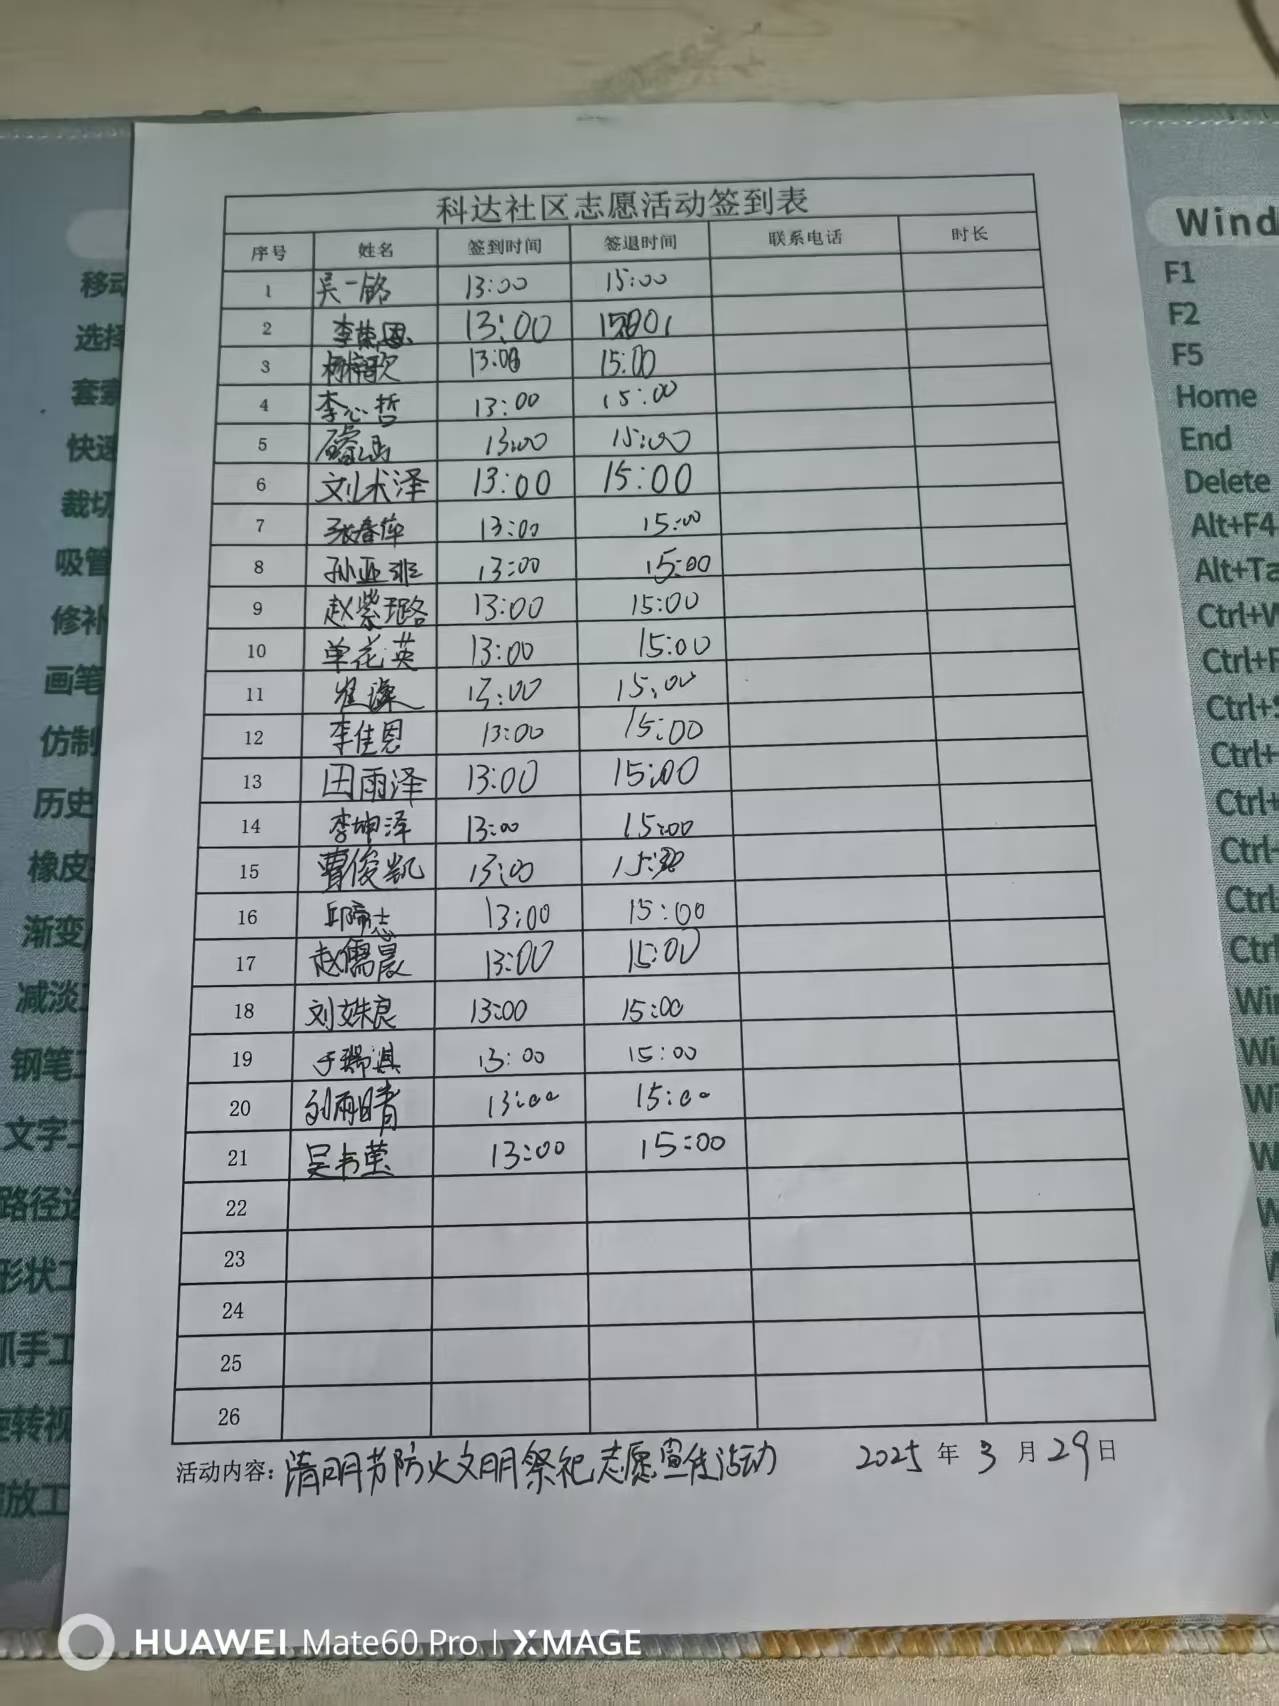 科达社区志愿活动签到表
序号 姓名 签到时间 签退时间 联系电话 时长
1 吴一铭 13:00 15:00
2 李荣恩 13:00
3 13:00 15:00
4 李心哲 13:00 15:00
5 13:00 15:00
6 刘术泽 13:00 15:00
7 张春萍 13:00 15:00
8 孙亚非 13:00 15:00
9 赵紫璐 13:00 15:00
10 单花英 13:00 15:00
11 13:00 15:00
12 李佳恩 13:00 15:00
13 田雨泽 13:00 15:00
14 李坤泽 13:00 15:00
15 曹俊凯 13:00
16 13:00 15:00
17 赵儒晨 13:00 15:00
18 刘姝良 13:00 15:00
19 于瑞淇 13:00 15:00
20 刘雨晴 13:00 15:00
21 吴书莹 13:00 15:00
22
23
24
25
26
活动内容: 清明节防火文明祭祀志愿宣传活动 2025 年 3 月 29 日
移动
选择
套索
快速
裁切
吸管
修补
画笔
仿制
历史
橡皮
渐变
减淡
钢笔工
文字工
路径选
形状工
抓手工
旋转视
缩放工
Wind
F1
F2
F5
Home
End
Delete
Alt+F4
Alt+Ta
Ctrl+W
Ctrl+F
Ctrl+S
Ctrl+
Ctrl+
Ctrl+
Ctrl
Ctrl
Win
Wi
Wi
W
W
HUAWEI Mate60 Pro | XMAGE